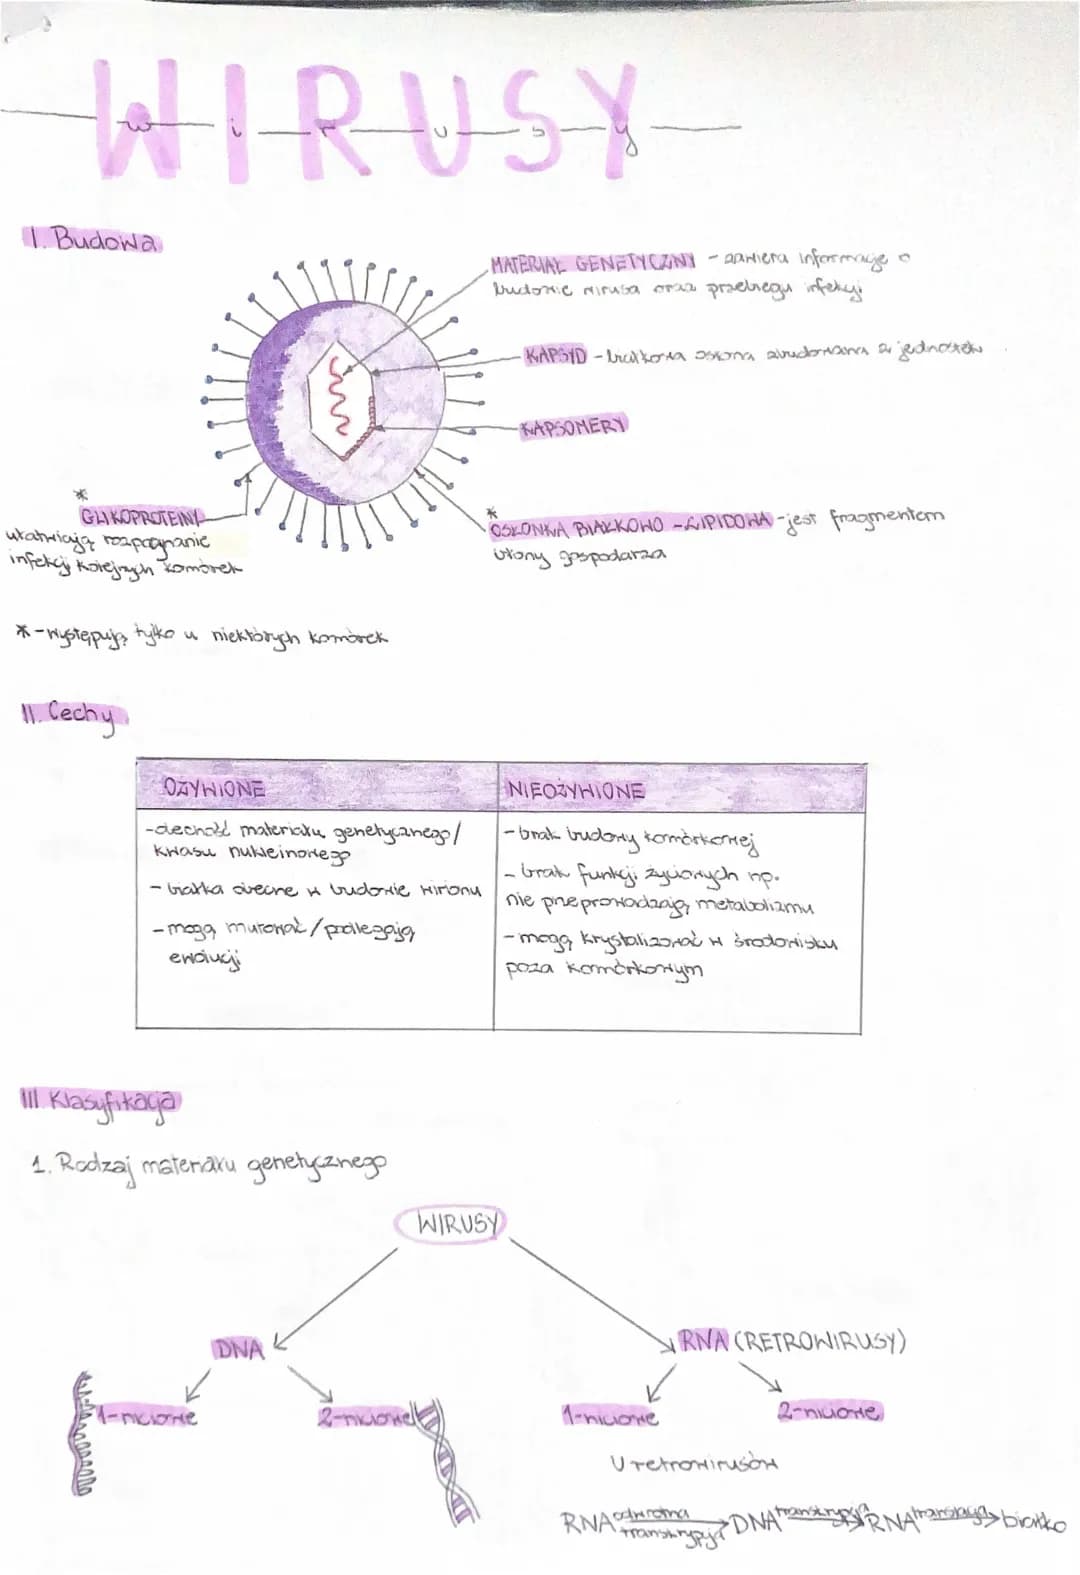 WIRUSY
w i r u s y
I. Budowa
MATERIAŁ GENETYCZNY - zawiera informacje o
budowie wirusa oraz przebiegu infekcji
KAPSYD - białkowa osłona zbudowana z jednostek
KAPSOMERY
*
GLIKOPROTEINY
ułatwiają rozpoznanie
infekcji kolejnych komórek
*
OSŁONKA BIAŁKOWO - LIPIDOWA - jest fragmentem
błony gospodarza
* - występują tylko u niektórych komórek
II. Cechy
OŻYWIONE
- obecność materiału genetycznego/
kwasu nukleinowego
- białka obecne w budowie wirionu
- mogą mutować / podlegają
ewolucji
NIEOŻYWIONE
- brak budowy komórkowej
- brak funkcji życiowych np.
nie przeprowadzają metabolizmu
- mogą krystalizować w środowisku
poza komórkowym
III. Klasyfikacja
1. Rodzaj materiału genetycznego
WIRUSY
DNA
RNA (RETROWIRUSY)
1-niciowe
2-niciowe
1-niciowe
2-niciowe
U retrowirusów
RNA odwrotna transkrypcja DNA transkrypcja RNA translacja białko